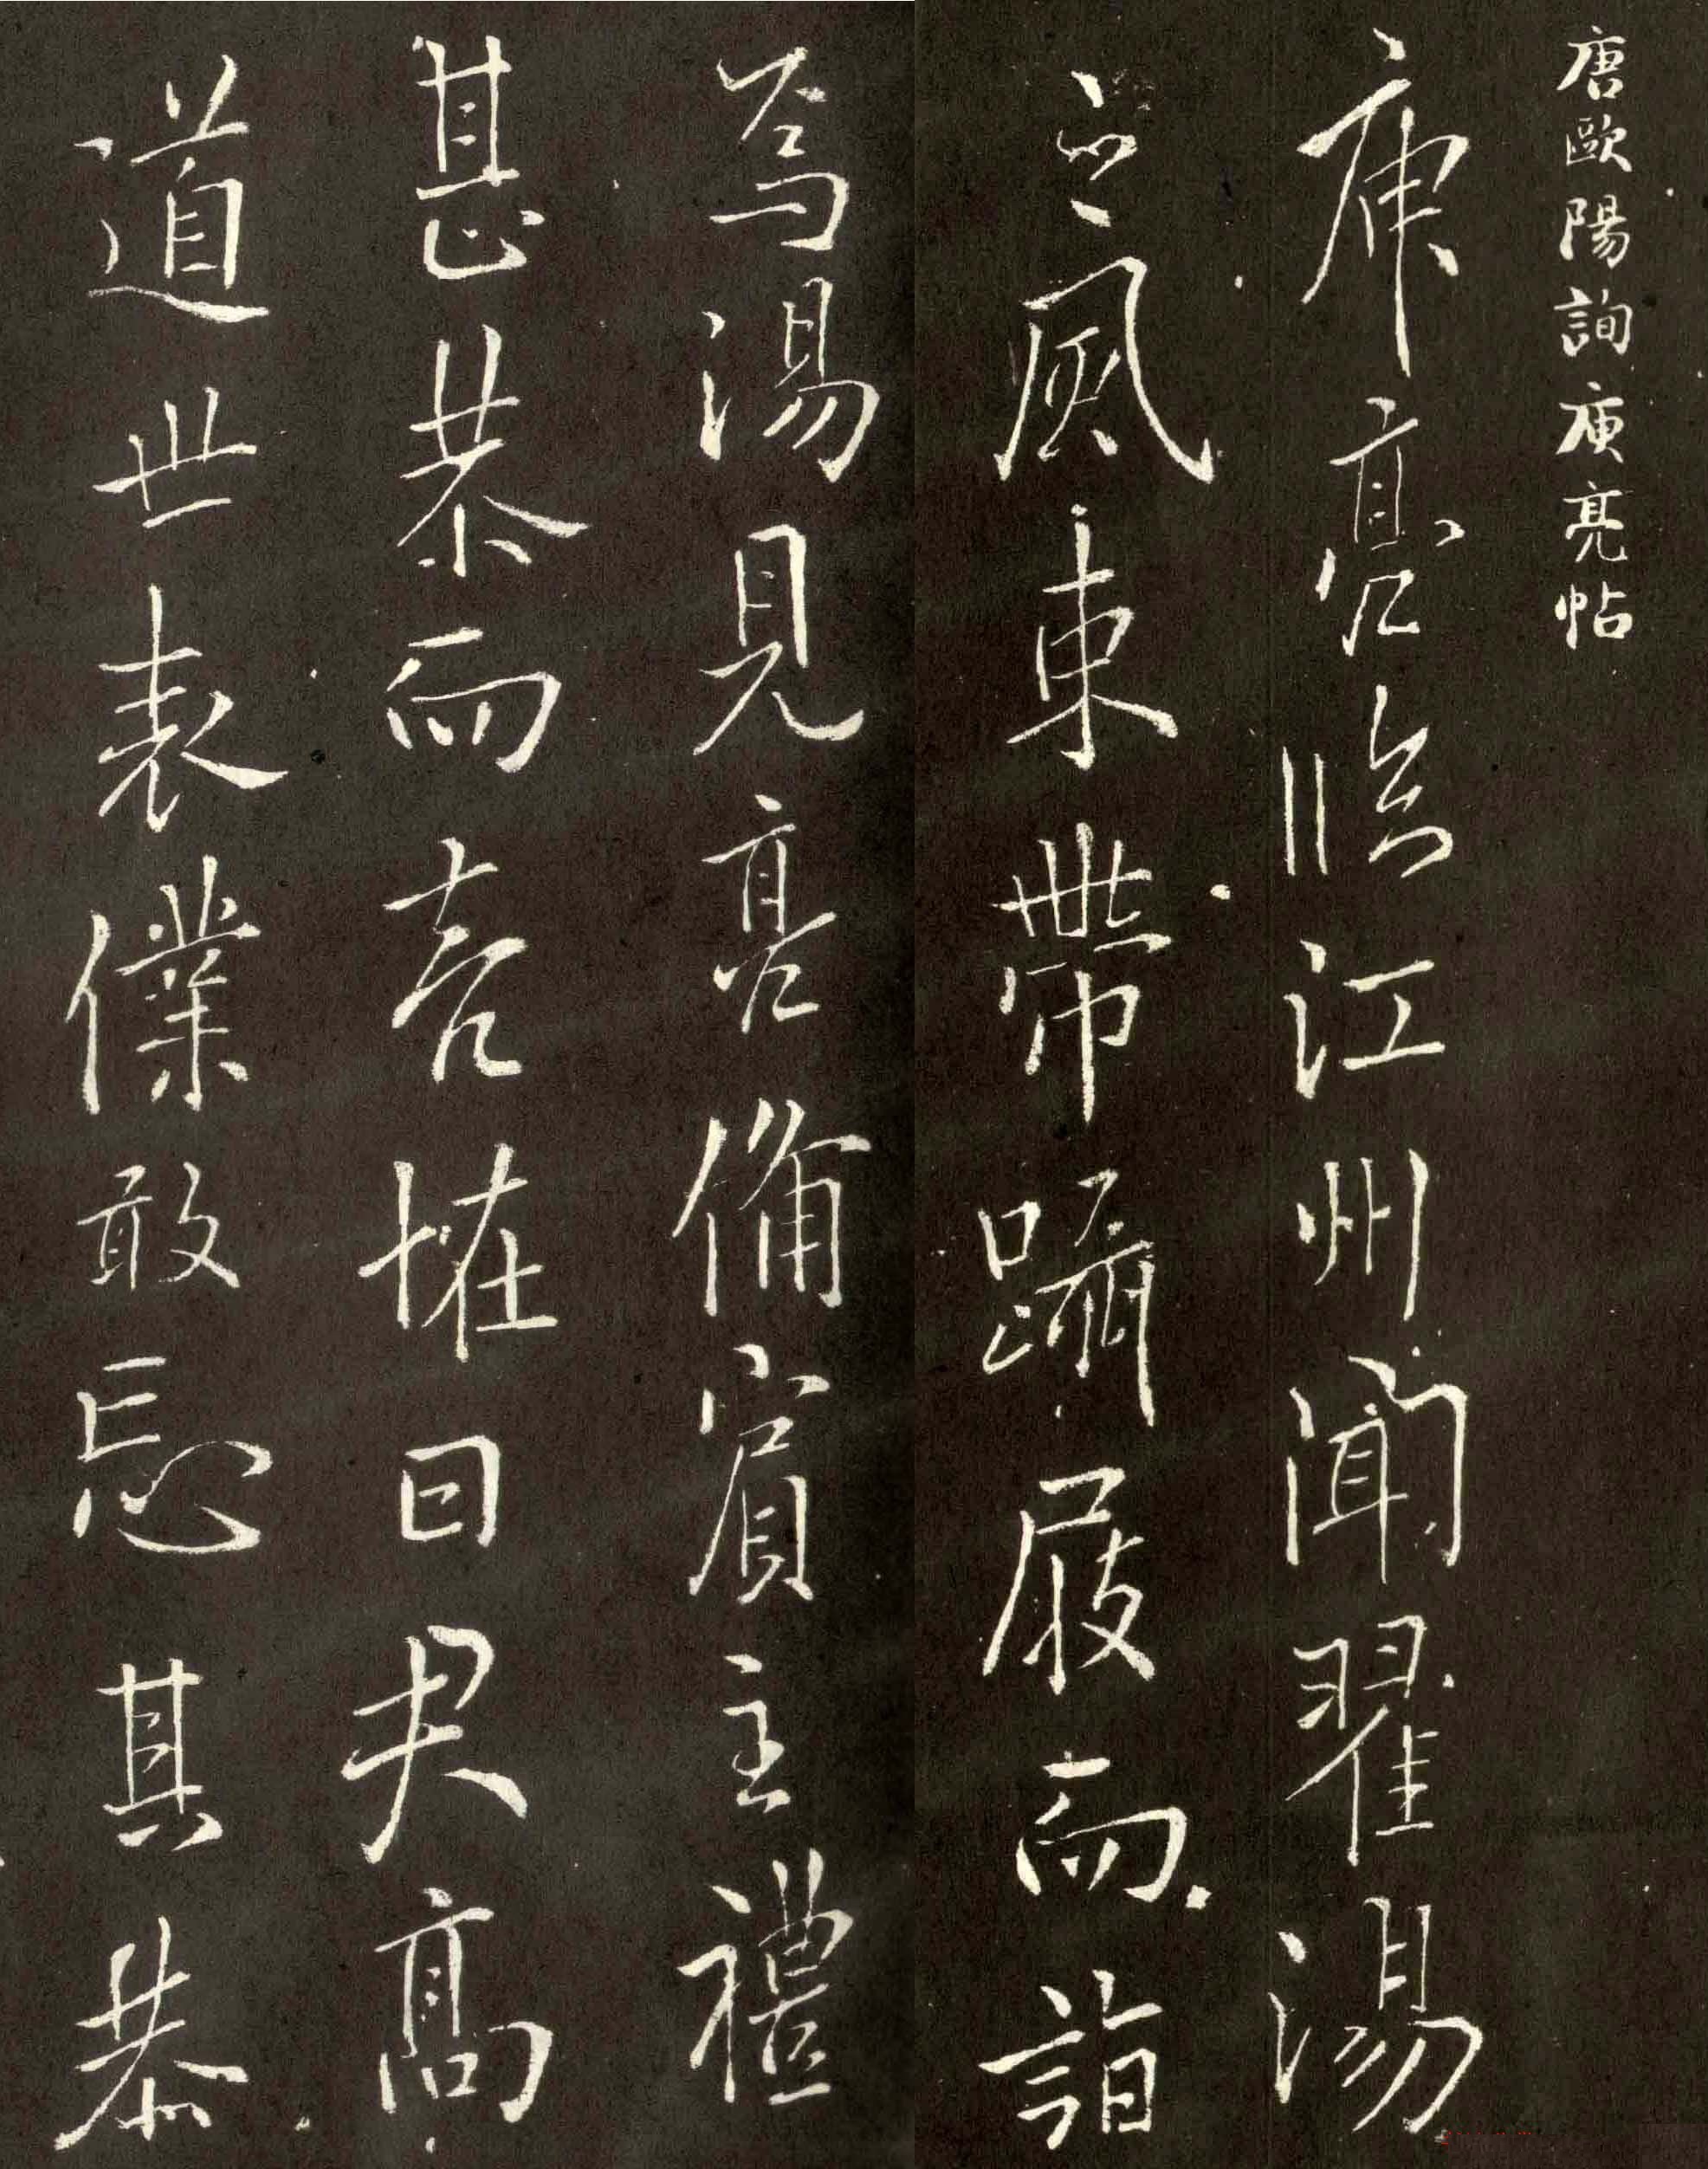 唐歐陽詢庾亮帖
庾亮臨江州聞翟湯
之風束帶躡屐而詣
焉湯見亮備賓主禮
甚恭而言怪曰君高
道世表僕敢忘其恭